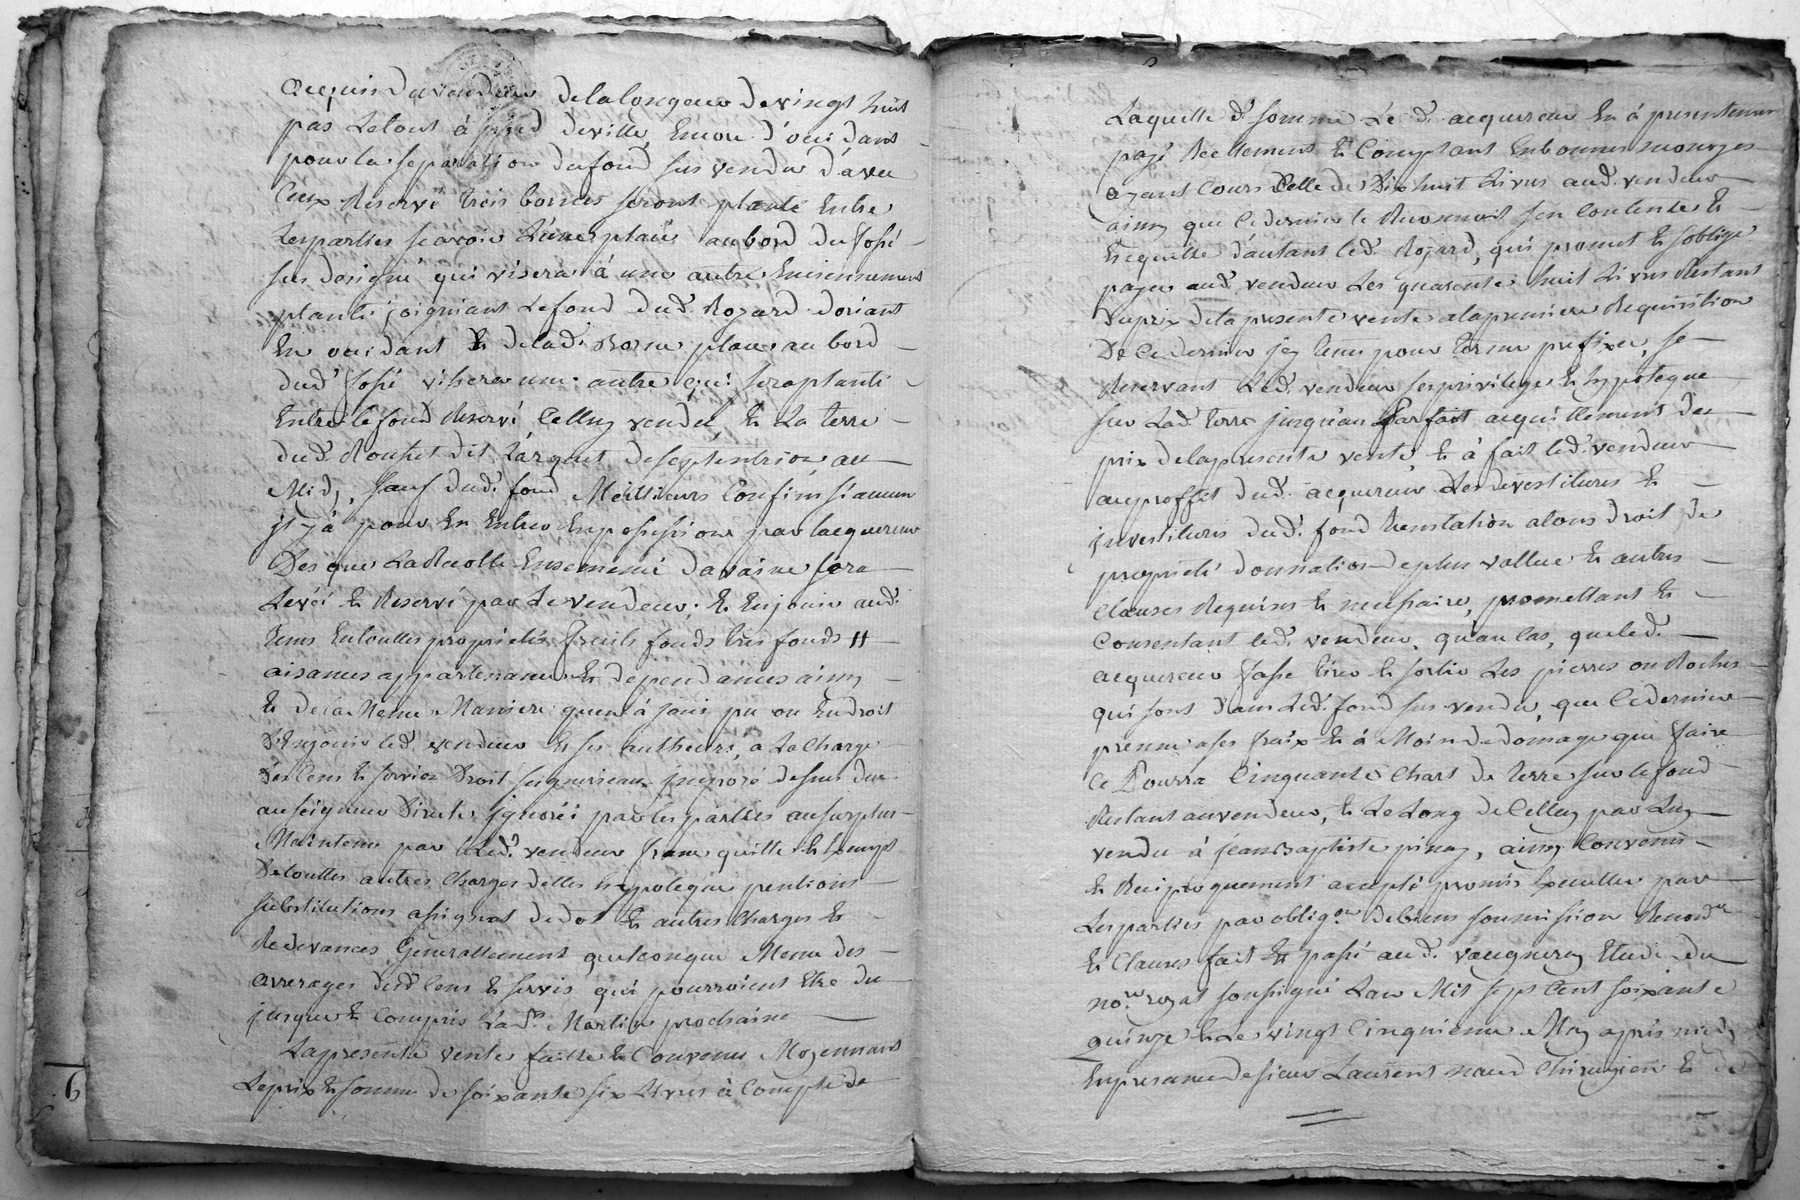 acquis du vendeur de la longeur de vingt huit
pas Le tout à pied de ville, Encore d'occidans
pour la separation du fond sus vendu d'avec
Celux Reservé trois bornes seront planté Entre
Les parties scavoir L'une placée au bord du fossé
sus designé qui visera à une autre
planté joigniant Le fond dud. Rozard doriant
En occidant Et de lad. Borne placé au bord
dud. fossé vissera une autre qui sera planté
Entre le fond Reservé, Celluy vendu, Et La terre
dud. Rouset dit Larquet de septentrion au
Midy, sauf dud. fond Meillieurs Confins si aucun
jl y à pour En Entrer En possession par lacquereur
Des que La Recolte Ensemencé davaine sera
Levéé Et Reservé par Le vendeur. Et En jouir aud.
tems En touttes proprietés fruits fonds tres fonds
aisances appartenances Et dependances ainsy
Et de la Meme Maniere qu'en à joui pu ou En droit
D'En jouir led. vendeur Et ses autheurs, a La Charge
Des Cens Et servics Droit seigneuriaux jmposé dessus dus
au seigneur Direct, jgnoréé par les parties au surplus
Maintenu par Led. vendeur franc quitte Et Exempt
De touttes autres Charges dettes hypoteque pentions
substitutions assignat de dot Et autres Charges Et
Redevances Generallement quelconque Meme des
arrerages desd. Cens Et servis qui pourroient Etre du
jusques Et Compris La St. Martin prochaine
La presente vente faitte Et Convenue Moyennant
Le prix Et somme de soixante six Livres à Compte de
Laquelle d. somme Le d. acquereur En à presentement
payé Reellement Et Comptant En bonnes monoyes
ayant Cours Celle de Dix huit Livres aud. vendeur
ainsy que Ce dernier le Reconnoit s'en Contente Et
En quitte d'autant led. Rozard, qui promet Et s'oblige
payer aud. vendeur Les quarente huit Livres Restant
du prix de la presente vente a la premiere Requisition
De Ce dernier jcy tenu pour terme prefixer, se
Reservant Led. vendeur ses privileges Et hypoteque
sur Lad. terre jusqu'au Parfait acquittement des
prix de la presente vente, Et à fait led. vendeur
au proffit dud. acquereur Les devestitures Et
jnvestitures dud. fond tous droit de
propriété donnation de plus vallue Et autres
Clauses Requises Et necessaire, promettant Et
Consentant led. vendeur, qu'au Cas, que led.
acquereur fasse tirer Et sortir Les pierres ou Roches
qui sont dans Led. fond sus vendu, que Ce dernier
prenne a ses fraix Et à Moin de domage que faire
Ce Pourra Cinquante Chart de terre sur le fond
Restant au vendeur, Et Le Long de Celluy par Luy
vendu à jean Baptiste pinay, ainsy Convenu
Et Reciproquement accepté promis Executter par
Les parties par oblign. de biens soumission Renonon.
Et Clauses fait Et passé aud. vaugneray Etude du
nore. royal soussigné L'an Mil sept Cent soixante
quinze Et Le vingt Cinquieme May après midy
En presance de sieur Laurent naud Chirurgien Et de
6